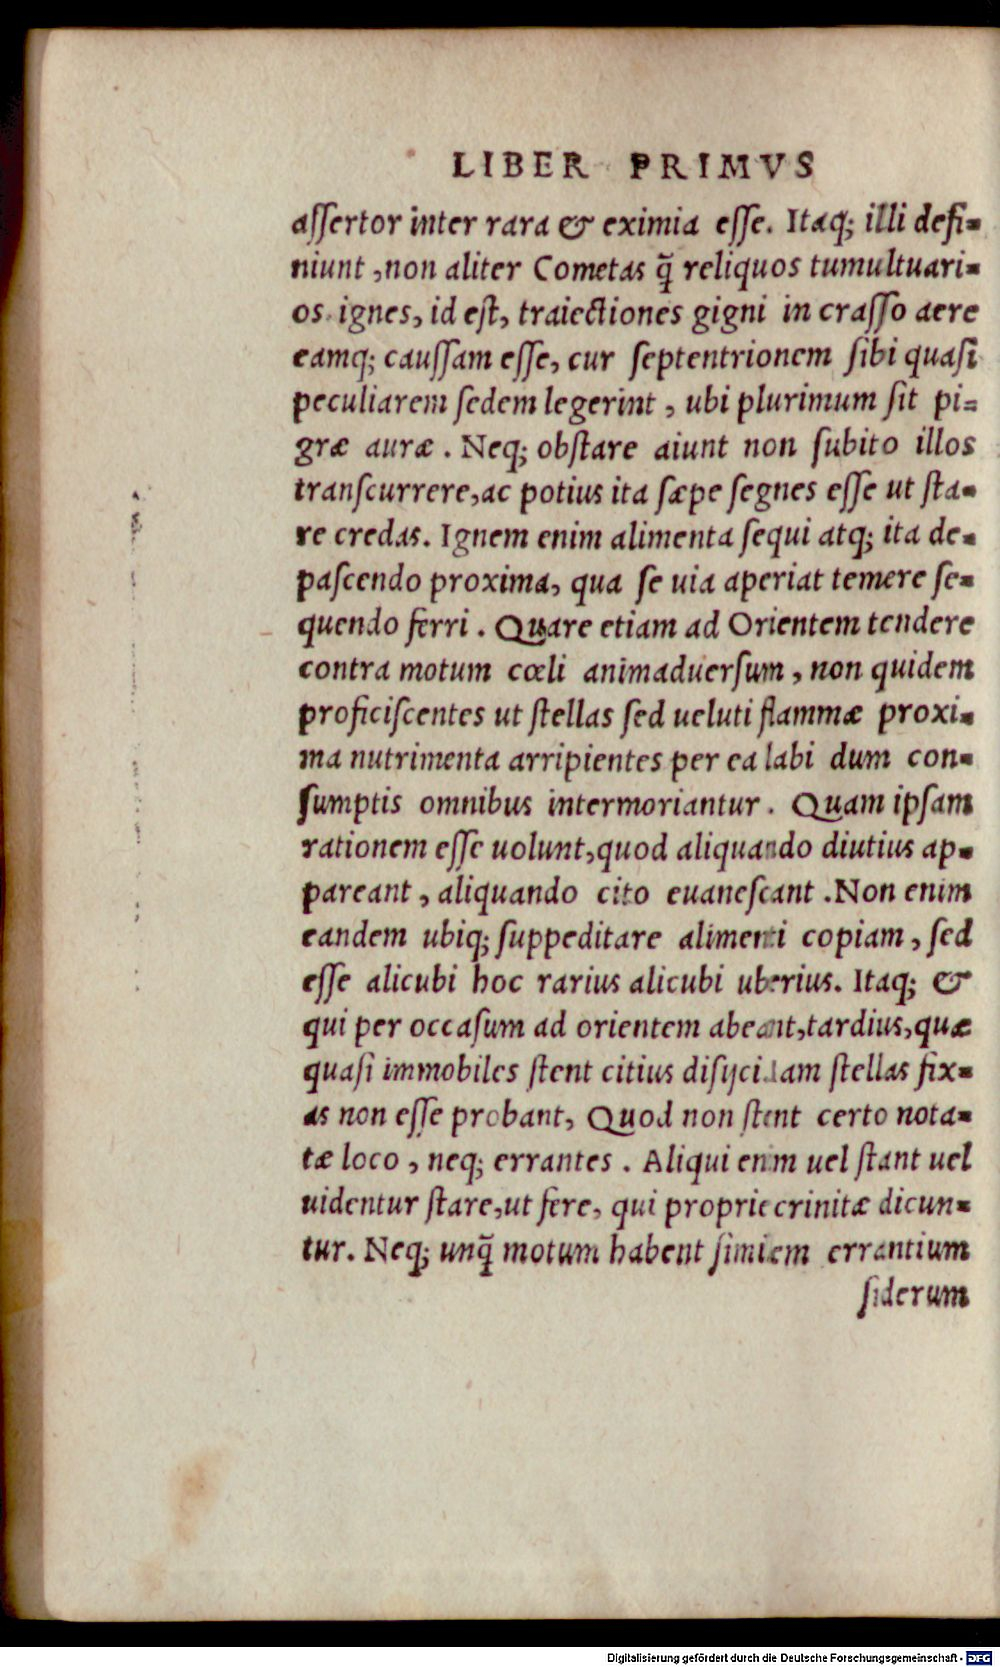 LIBER PRIMVS
aſſertor inter rara & eximia eſſe. Itaq; illi defi=
niunt ,non aliter Cometas q̃ reliquos tumultuari=
os ignes, id eſt, traiectiones gigni in craſſo aere
eamq; cauſſam eſſe, cur ſeptentrionem ſibi quaſi
peculiarem ſedem legerint , ubi plurimum ſit pi=
græ auræ . Neq; obſtare aiunt non ſubito illos
tranſcurrere,ac potius ita ſæpe ſegnes eſſe ut ſta=
re credas. Ignem enim alimenta ſequi atq; ita de=
paſcendo proxima, qua ſe uia aperiat temere ſe=
quendo ferri . Quare etiam ad Orientem tendere
contra motum cœli animaduerſum , non quidem
proficiſcentes ut ſtellas ſed ueluti flammæ proxi=
ma nutrimenta arripientes per ea labi dum con=
ſumptis omnibus intermoriantur . Quam ipſam
rationem eſſe uolunt,quod aliquando diutius ap=
pareant , aliquando cito euaneſcant .Non enim
eandem ubiq; ſuppeditare alimenti copiam , ſed
eſſe alicubi hoc rarius alicubi uberius. Itaq; &
qui per occaſum ad orientem abeant,tardius,quæ
quaſi immobiles ſtent citius diſijci. Iam ſtellas fix=
as non eſſe probant, Quod non ſtent certo nota=
tæ loco , neq; errantes . Aliqui enim uel ſtant uel
uidentur ſtare,ut fere, qui proprie crinitæ dicun=
tur. Neq; unq̃ motum habent ſimilem errantium
ſiderum
Digitalisierung gefördert durch die Deutsche Forschungsgemeinschaft - DFG